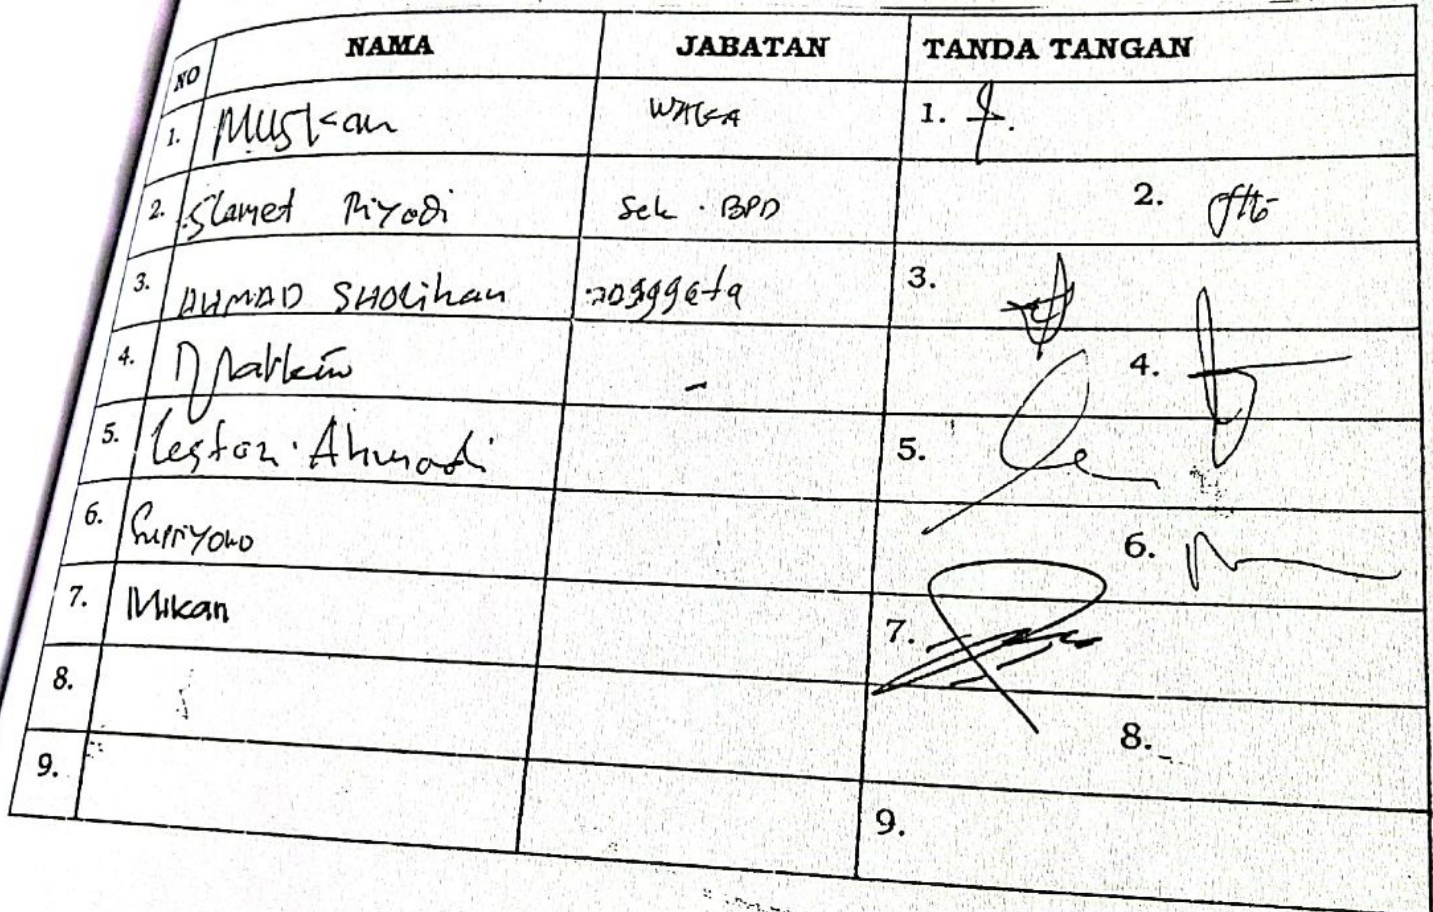 NO NAMA JABATAN TANDA TANGAN
1. Muskan WAKA 1.
2. Slamet Riyadi Sek. BPD 2.
3. AHMAD SHOLIHAN 3.
4. - 4.
5. Lestari Ahmadi 5.
6. Supriyono 6.
7. Mikan 7.
8. 8.
9. 9.